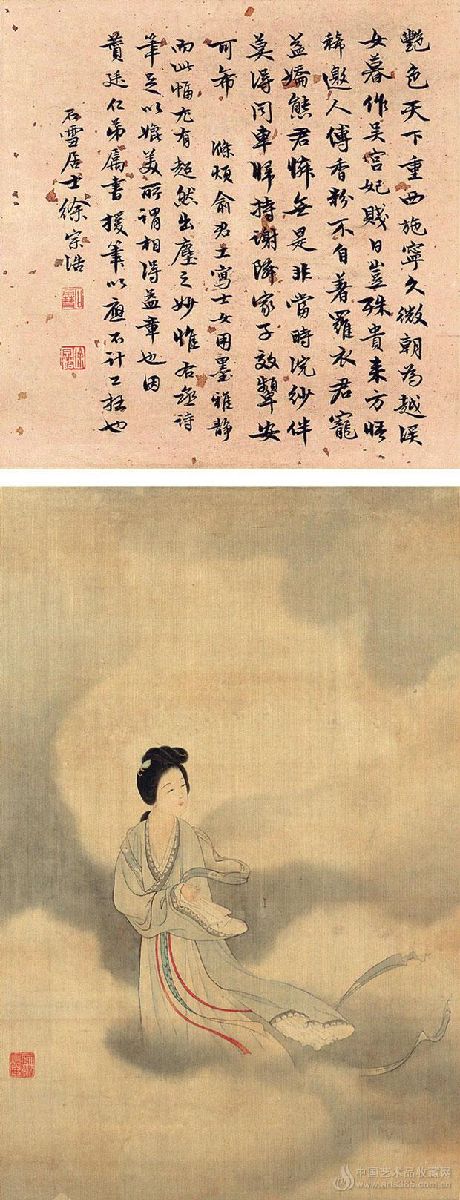 艷色天下重西施寧久微朝為越溪
女暮作吴宫妃賤日豈殊貴来方悟
稀邀人傅香粉不自著羅衣君寵
益嬌態君憐無是非當時浣紗伴
莫得同車歸持謝隣家子效顰安
可希 滌煩俞君工寫士女用墨雅静
而此幅尤有超然出塵之妙惟右丞詩
筆足以媲美所謂相得益章也因
廷仁弟屬書援筆以應不计工拙也
石雪居士徐宗浩
中国艺术品收藏网